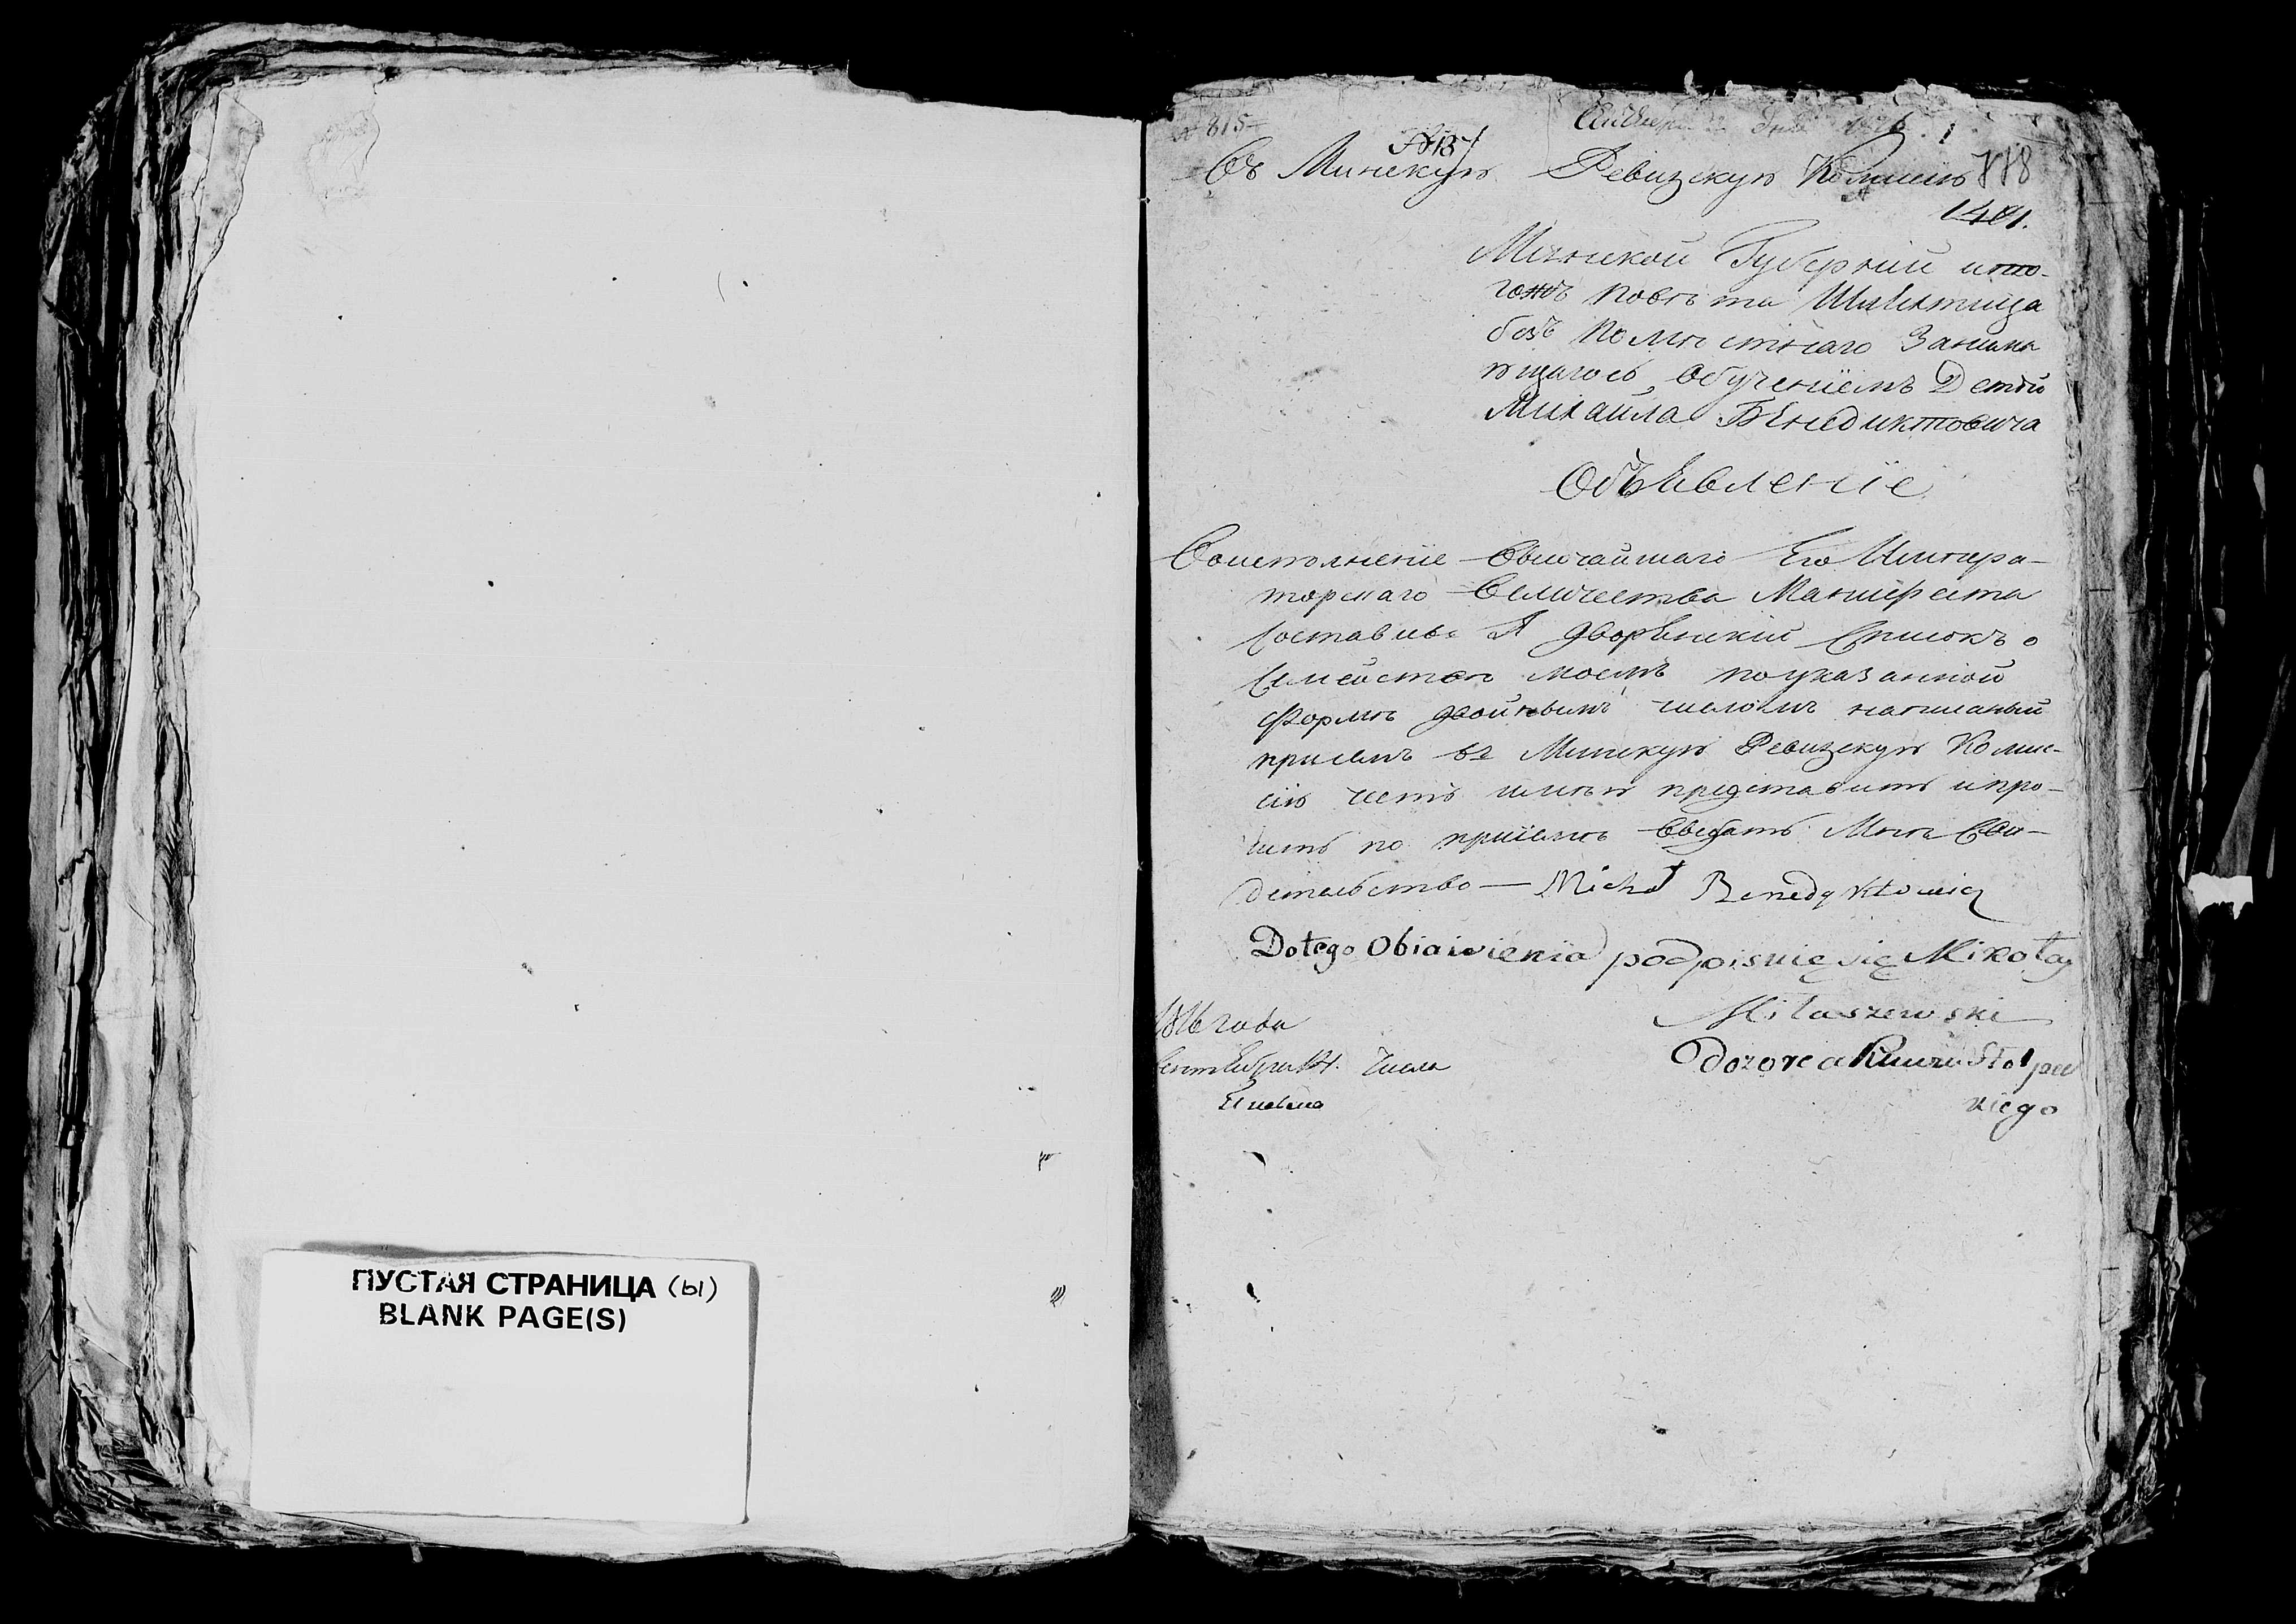 ПУСТАЯ СТРАНИЦА (ы)
BLANK PAGE(S)
№ 815
дня
№ 137
Въ Минскую Ревизскую Комисію 778
1401.
Минской Губерніи ито-
гожъ повѣта Шляхтица
безъ помѣстнаго Занима
ющагось Обученіемъ Детей
Михаила Бенедиктовича
Объявленіе
Воисполненіе Высочайшаго Его Импера-
торскаго Величества Манифеста
составивъ Я дворянскій Списокъ о
Семействѣ моемъ поуказанной
Формѣ двойнымъ числомъ написаный
присемъ въ Минскую Ревизскую Комис-
сію честь имѣю представить ипро-
сить по пріемѣ выдать Мнѣ Сви-
детельство — Michał Benedyktowicz
Do tego Obiawienia podpisuię się Mikołay
Miłaszewski
1816 года
Сентября 14. Числа
Dozorca Klucza Stołpec
kiego